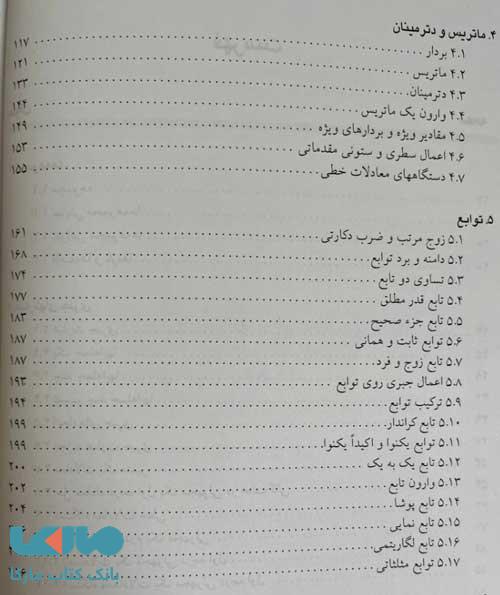 ۴. ماتریس و دترمینان
۴.۱ بردار ۱۱۷
۴.۲ ماتریس ۱۲۱
۴.۳ دترمینان ۱۳۳
۴.۴ وارون یک ماتریس ۱۴۴
۴.۵ مقادیر ویژه و بردارهای ویژه ۱۴۹
۴.۶ اعمال سطری و ستونی مقدماتی ۱۵۳
۴.۷ دستگاههای معادلات خطی ۱۵۵
۵. توابع
۵.۱ زوج مرتب و ضرب دکارتی ۱۶۱
۵.۲ دامنه و برد توابع ۱۶۸
۵.۳ تساوی دو تابع ۱۷۴
۵.۴ تابع قدر مطلق ۱۷۷
۵.۵ تابع جزء صحیح ۱۸۳
۵.۶ توابع ثابت و همانی ۱۸۷
۵.۷ تابع زوج و فرد ۱۸۷
۵.۸ اعمال جبری روی توابع ۱۹۳
۵.۹ ترکیب توابع ۱۹۴
۵.۱۰ تابع کراندار ۱۹۹
۵.۱۱ توابع یکنوا و اکیداً یکنوا ۱۹۹
۵.۱۲ تابع یک به یک ۲۰۰
۵.۱۳ وارون تابع ۲۰۲
۵.۱۴ تابع پوشا ۲۰۴
۵.۱۵ تابع نمایی
۵.۱۶ تابع لگاریتمی
۵.۱۷ توابع مثلثاتی
مارکا
بانک کتاب مارکا